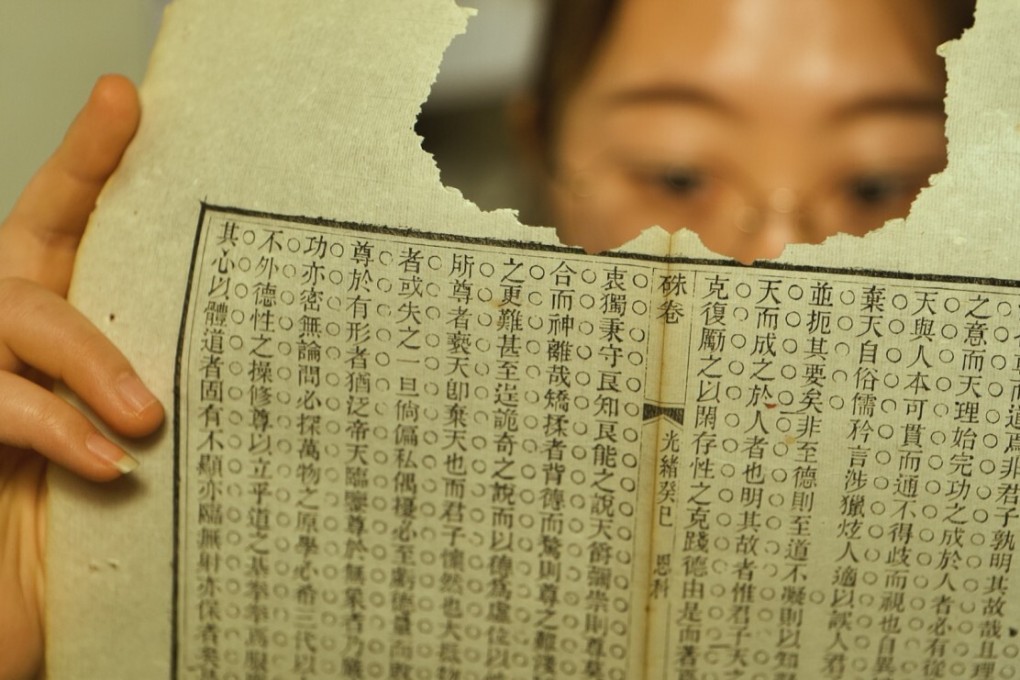 之意而天理始完功之成於人者必有從
天與人本可貫而通不得歧而視也自異
棄天自俗儒矜言涉獵炫人適以誤人君
並扼其要矣非至德則至道不凝則以知
天而成之於人者也明其故者惟君子天之
克復勵之以閑存性之克踐德由是而著
硃卷
光緒癸巳 恩科
衷獨秉守良知良能之說天爵彌崇則尊莫
合而神離哉矯揉者背德而騖則尊之難淺
之更難甚至逞詭奇之說而以德爲虛位以
所尊者褻天卽棄天也而君子懍然也大
者或失之一旦倘偏私偶擾必至虧德量而
尊於有形者猶泛帝天臨鑒尊於無象者乃
功亦密無論問必探萬物之原學必希三代以
不外德性之操修尊以立乎道之基拳拳爲服
其心以體道者固有不顯亦臨無射亦保者矣